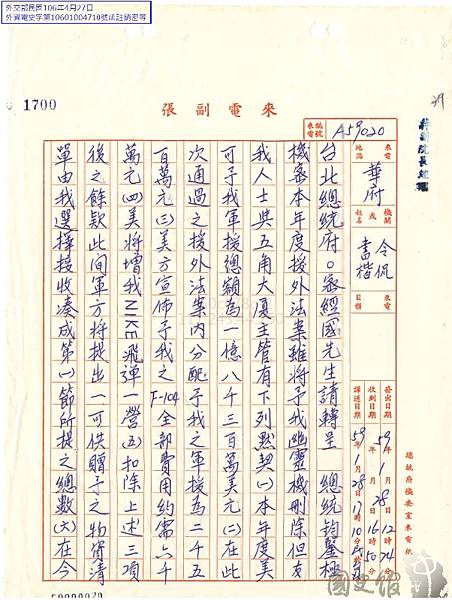 外交部民國106年4月27日
外資電史字第10601004710號函註銷密等
1700
來電副張
來電
編號
A59020
來電
地點
華府
機關
或
姓名
令侃
書楷
來電
日期
發出日期
59年1月28日12時24分
收到日期
59年1月28日16時50分
譯送日期
59年1月28日17時10分
總統府機要室來電紙
台北總統府○密經國先生請轉呈 總統鈞鑒極
機密本年度援外法案雖將予我幽靈機刪除但友
我人士與五角大廈主管有下列默契(一)本年度美
可予我軍援總額為一億八千三百萬美元(二)在此
次通過之援外法案內分配予我之軍援為二千五
百萬元(三)美方宣佈予我之F-104全部費用約需六千
萬元(四)美將增我NIKE飛彈一營(五)扣除上述三項
後之餘款此間軍方將提出一可供贈予之物資清
單由我選擇接收凑成第(一)節所提之總數(六)在今
國史館